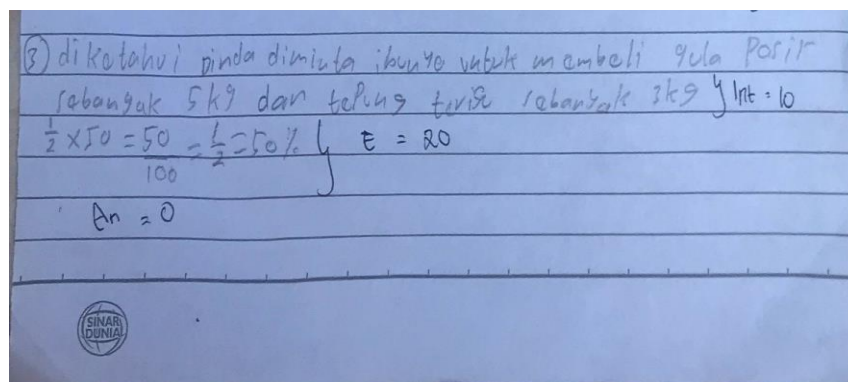 ③ diketahui dinda diminta ibunya untuk membeli gula Pasir
sebanyak 5kg dan tepung terigu sebanyak 3kg } Int = 10
1/2 x 50 = 50/100 = 1/2 = 50% } E = 20
An = 0
SINAR
DUNIA